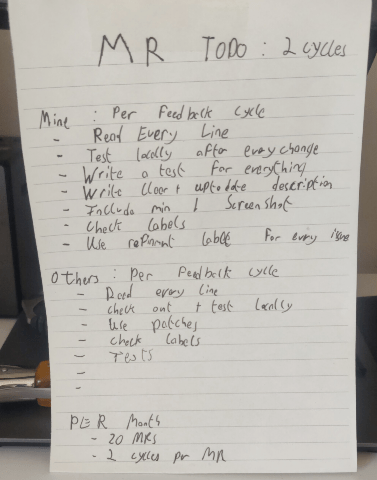 MR TODO : 2 cycles
Mine : Per Feedback cycle
- Read Every Line
- Test locally after every change
- Write a test for everything
- Write clear + up to date description
- Include min 1 Screenshot
- Check Labels
- Use label for every issue
Others : Per Feedback cycle
- Read every line
- check out + test locally
- Use patches
- check Labels
- Tests
-
-
PER Month
- 20 MRs
- 2 cycles per MR